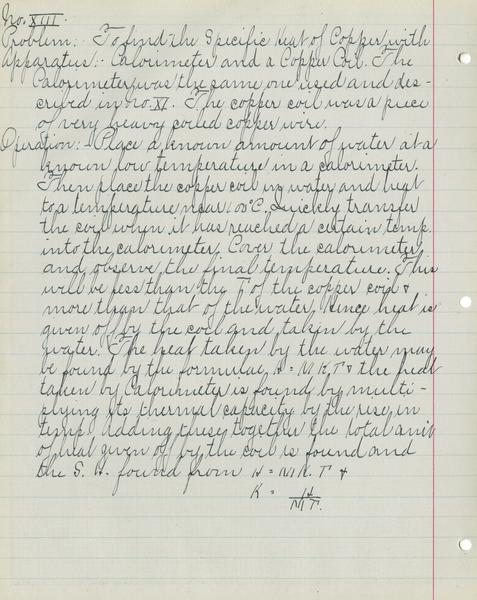 No. XIII.
Problem:- To find the Specific heat of Copper with
Apparatus:- Calorimeter and a Copper Coil. The
Calorimeter was the same one used and des-
cribed in no. XI. The copper coil was a piece
of very heavy coiled copper wire.
Operation:- Place a known amount of water at a
known low temperature in a calorimeter.
Then place the copper coil in water and heat
to a temperature near 100°C. Quickly transfer
the coil when it has reached a certain temp.
into the calorimeter. Cover the calorimeter
and observe the final temperature. This
will be less than the T of the copper coil &
more than that of the water, since heat is
given of by the coil and taken by the
water. The heat taken by the water may
be found by the formulae H = M K T & the heat
taken by Calorimeter is found by multi-
plying its thermal capacity by the rise in
temp. Adding these together the total amt
of heat given of by the coil is found and
the S. H. found from H = M K. T &
K = H
M T.